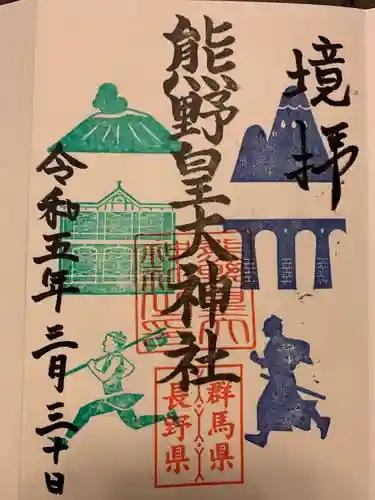 境拝
熊野皇大神社
令和五年三月三十日
群馬県
長野県